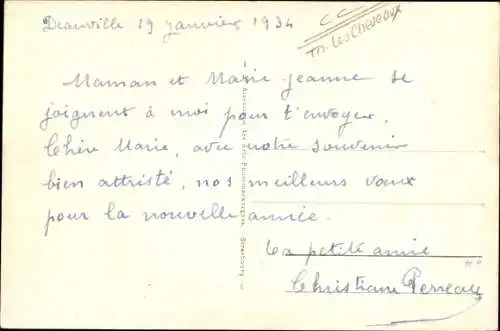 Deauville 19 janvier 1934
CC
Th. Les Chevaux
Maman et Marie Jeanne se
joignent à moi pour t'envoyer,
Chère Marie, avec notre souvenir
bien attristé, nos meilleurs vœux
pour la nouvelle année.
ta petite amie
Christiane Perreau